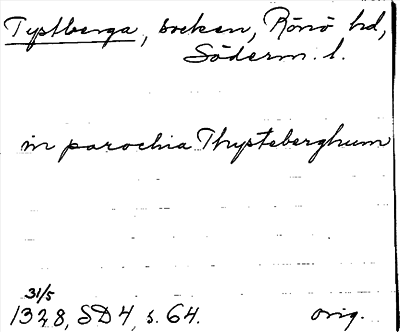 Tystberga, socken, Rönö hd,
Söderm. l.
in parochia Thysteberghum
31/5
1328, SD4, s. 64. orig.